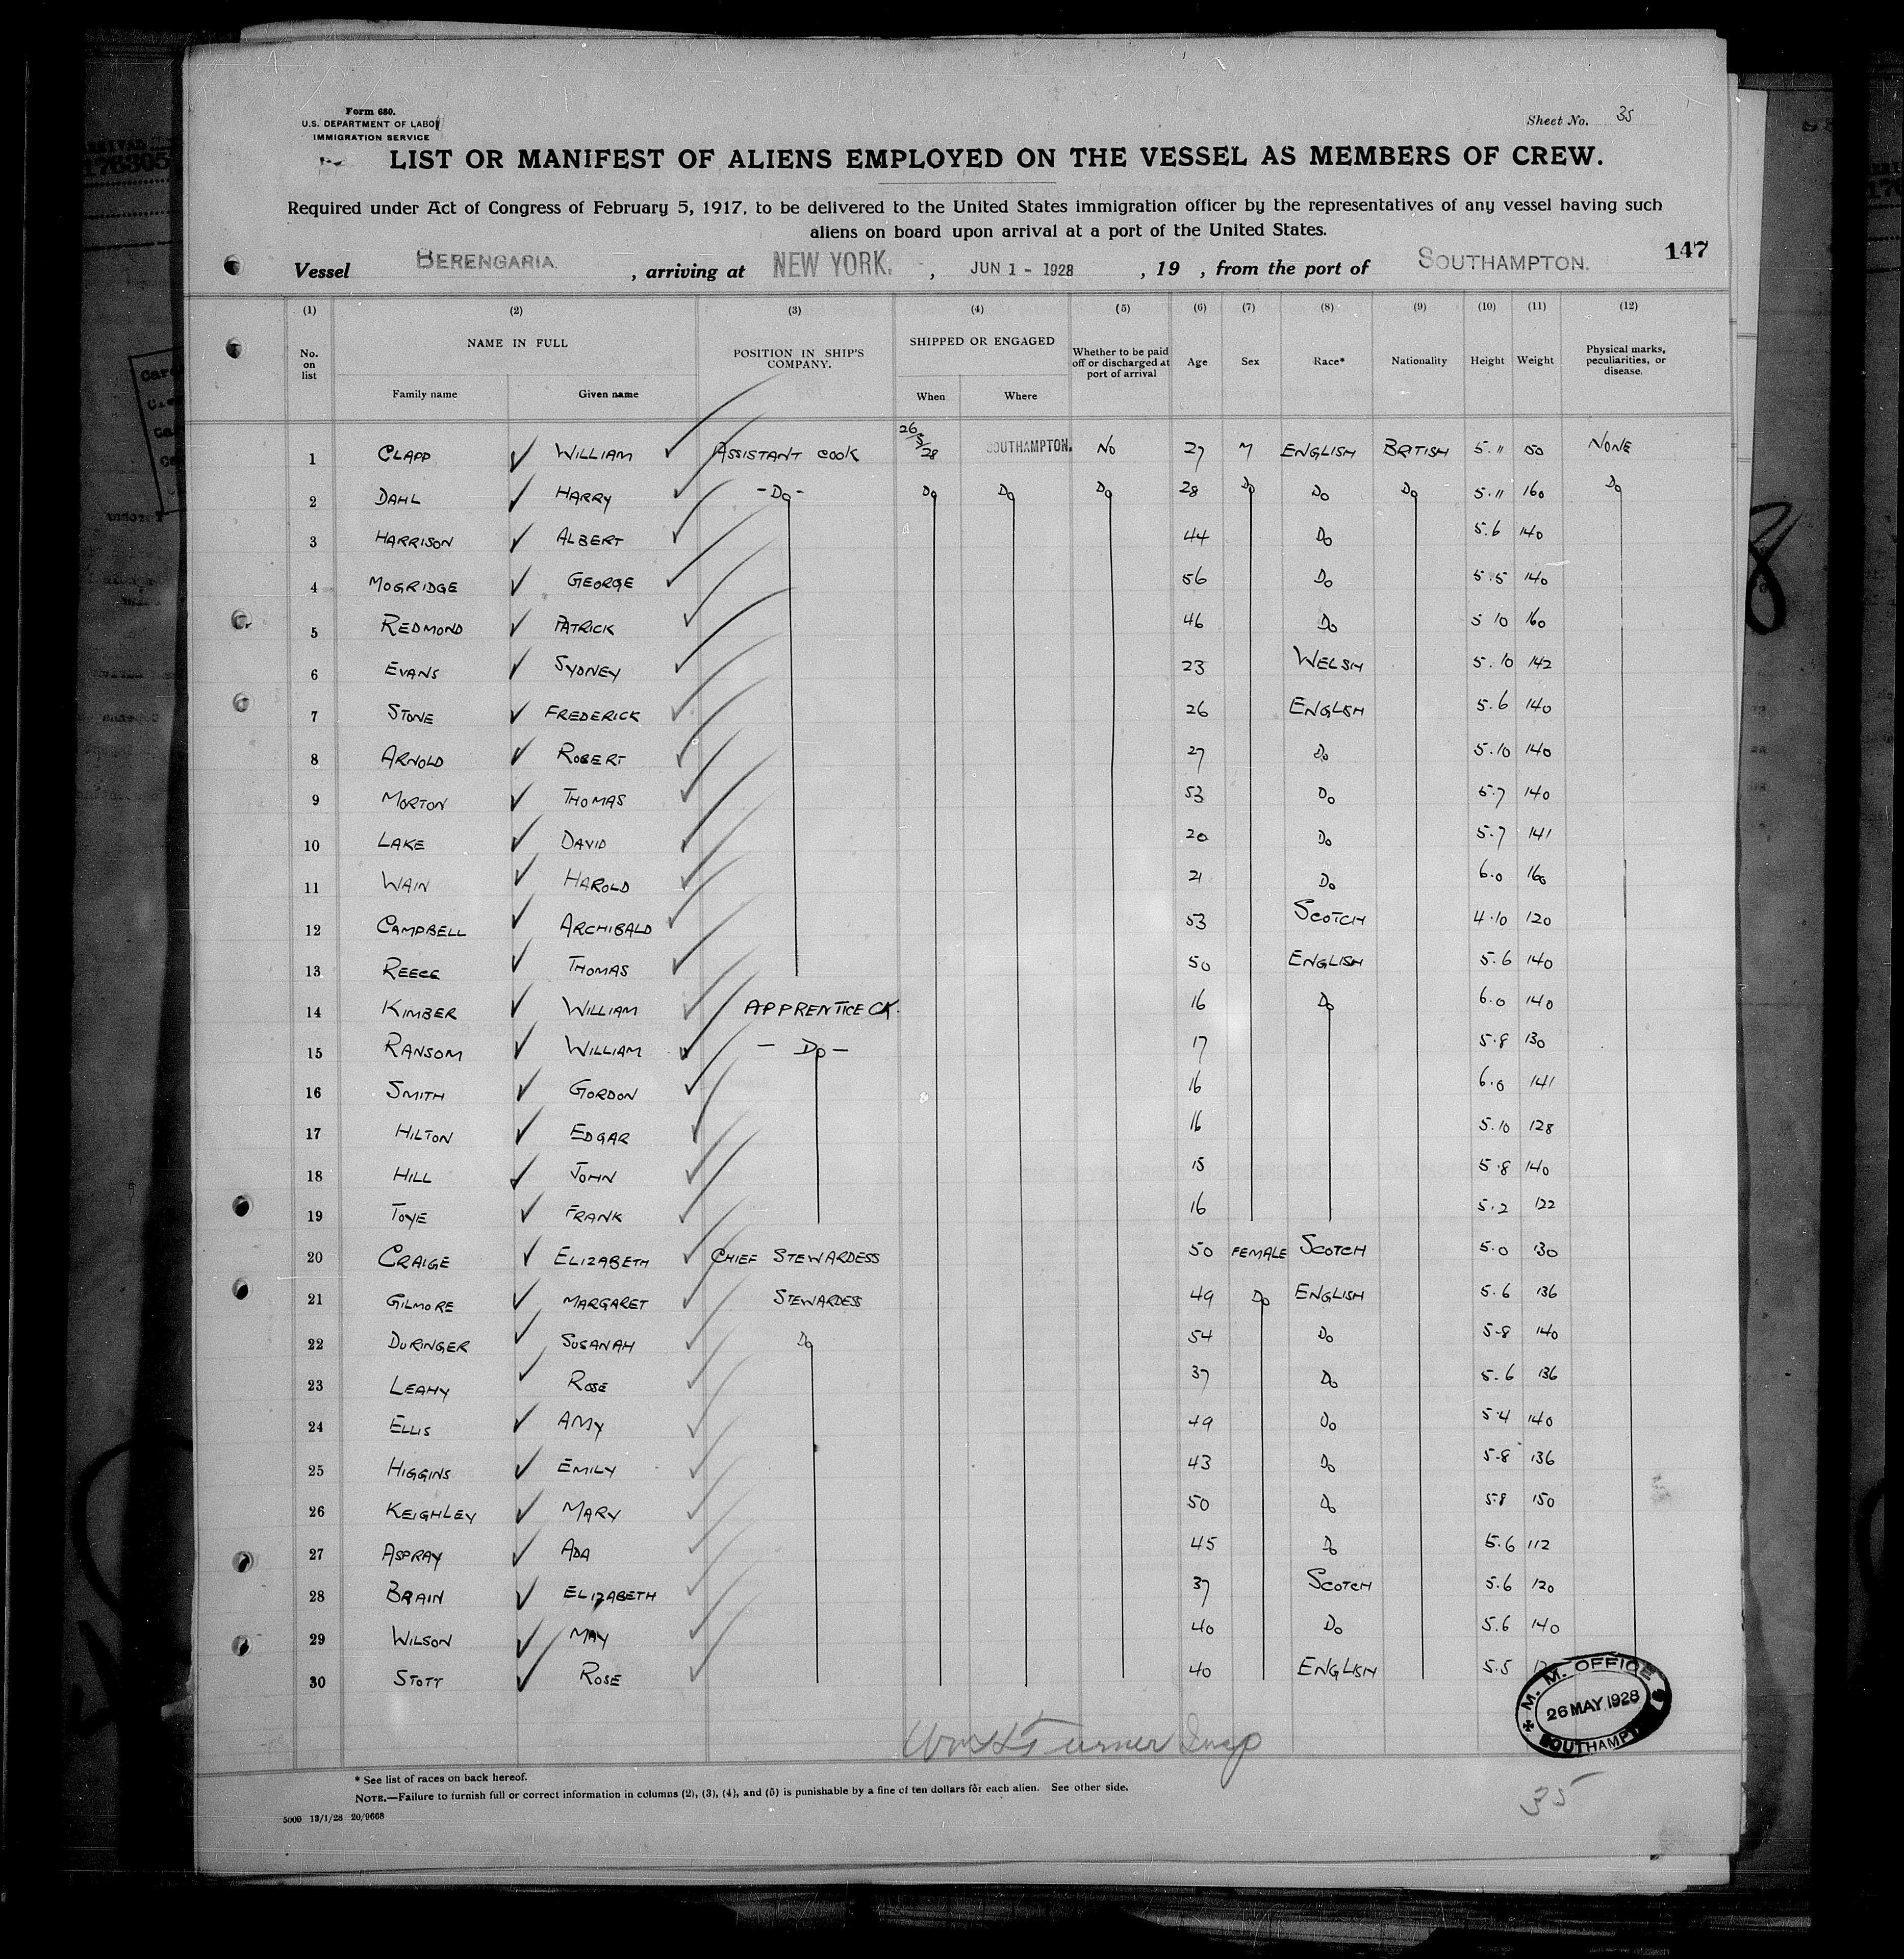 Form 680.
U.S. DEPARTMENT OF LABOR
IMMIGRATION SERVICE
Sheet No. 35
LIST OR MANIFEST OF ALIENS EMPLOYED ON THE VESSEL AS MEMBERS OF CREW.
Required under Act of Congress of February 5, 1917, to be delivered to the United States immigration officer by the representatives of any vessel having such
aliens on board upon arrival at a port of the United States.
147
Vessel BERENGARIA. , arriving at NEW YORK. , JUN 1 - 1928 , 19 , from the port of SOUTHAMPTON.
(1) (2) (3) (4) (5) (6) (7) (8) (9) (10) (11) (12)
No. on list NAME IN FULL POSITION IN SHIP'S COMPANY. SHIPPED OR ENGAGED Whether to be paid off or discharged at port of arrival Age Sex Race* Nationality Height Weight Physical marks, peculiarities, or disease.
Family name Given name When Where
1 CLAPP ✓ WILLIAM ✓ ASSISTANT COOK 26/5/28 SOUTHAMPTON. NO 27 M ENGLISH BRITISH 5.11 150 NONE
2 DAHL ✓ HARRY ✓ -Do- Do Do Do 28 Do Do Do 5.11 160 Do
3 HARRISON ✓ ALBERT ✓ 44 Do 5.6 140
4 MOGRIDGE ✓ GEORGE ✓ 56 Do 5.5 140
5 REDMOND ✓ PATRICK ✓ 46 Do 5 10 160
6 EVANS ✓ SYDNEY ✓ 23 WELSH 5.10 142
7 STONE ✓ FREDERICK ✓ 26 ENGLISH 5.6 140
8 ARNOLD ✓ ROBERT ✓ 27 Do 5.10 140
9 MORTON ✓ THOMAS ✓ 53 Do 5.7 140
10 LAKE ✓ DAVID ✓ 20 Do 5.7 141
11 WAIN ✓ HAROLD ✓ 21 Do 6.0 160
12 CAMPBELL ✓ ARCHIBALD ✓ 53 SCOTCH 4.10 120
13 REECE ✓ THOMAS ✓ 50 ENGLISH 5.6 140
14 KIMBER ✓ WILLIAM ✓ APPRENTICE CK. 16 Do 6.0 140
15 RANSOM ✓ WILLIAM ✓ - Do - 17 5.8 130
16 SMITH ✓ GORDON ✓ 16 6.0 141
17 HILTON ✓ EDGAR ✓ 16 5.10 128
18 HILL ✓ JOHN ✓ 15 5.8 140
19 TOYE ✓ FRANK ✓ 16 5.2 122
20 CRAIGE ✓ ELIZABETH ✓ CHIEF STEWARDESS 50 FEMALE SCOTCH 5.0 130
21 GILMORE ✓ MARGARET ✓ STEWARDESS 49 Do ENGLISH 5.6 136
22 DURINGER ✓ SUSANAH ✓ Do 54 Do 5-8 140
23 LEAHY ✓ ROSE ✓ 37 Do 5-6 136
24 ELLIS ✓ AMY ✓ 49 Do 5.4 140
25 HIGGINS ✓ EMILY ✓ 43 Do 5-8 136
26 KEIGHLEY ✓ MARY ✓ 50 Do 5.8 150
27 ASPRAY ✓ ADA ✓ 45 Do 5.6 112
28 BRAIN ✓ ELIZABETH ✓ 37 SCOTCH 5.6 120
29 WILSON ✓ MAY ✓ 40 Do 5.6 140
30 STOTT ✓ ROSE ✓ 40 ENGLISH 5.5
M. M. OFFICE
26 MAY 1928
SOUTHAMPT
Turner Insp
* See list of races on back hereof.
NOTE.—Failure to furnish full or correct information in columns (2), (3), (4), and (5) is punishable by a fine of ten dollars for each alien. See other side.
35
5000 13/1/28 20/9668